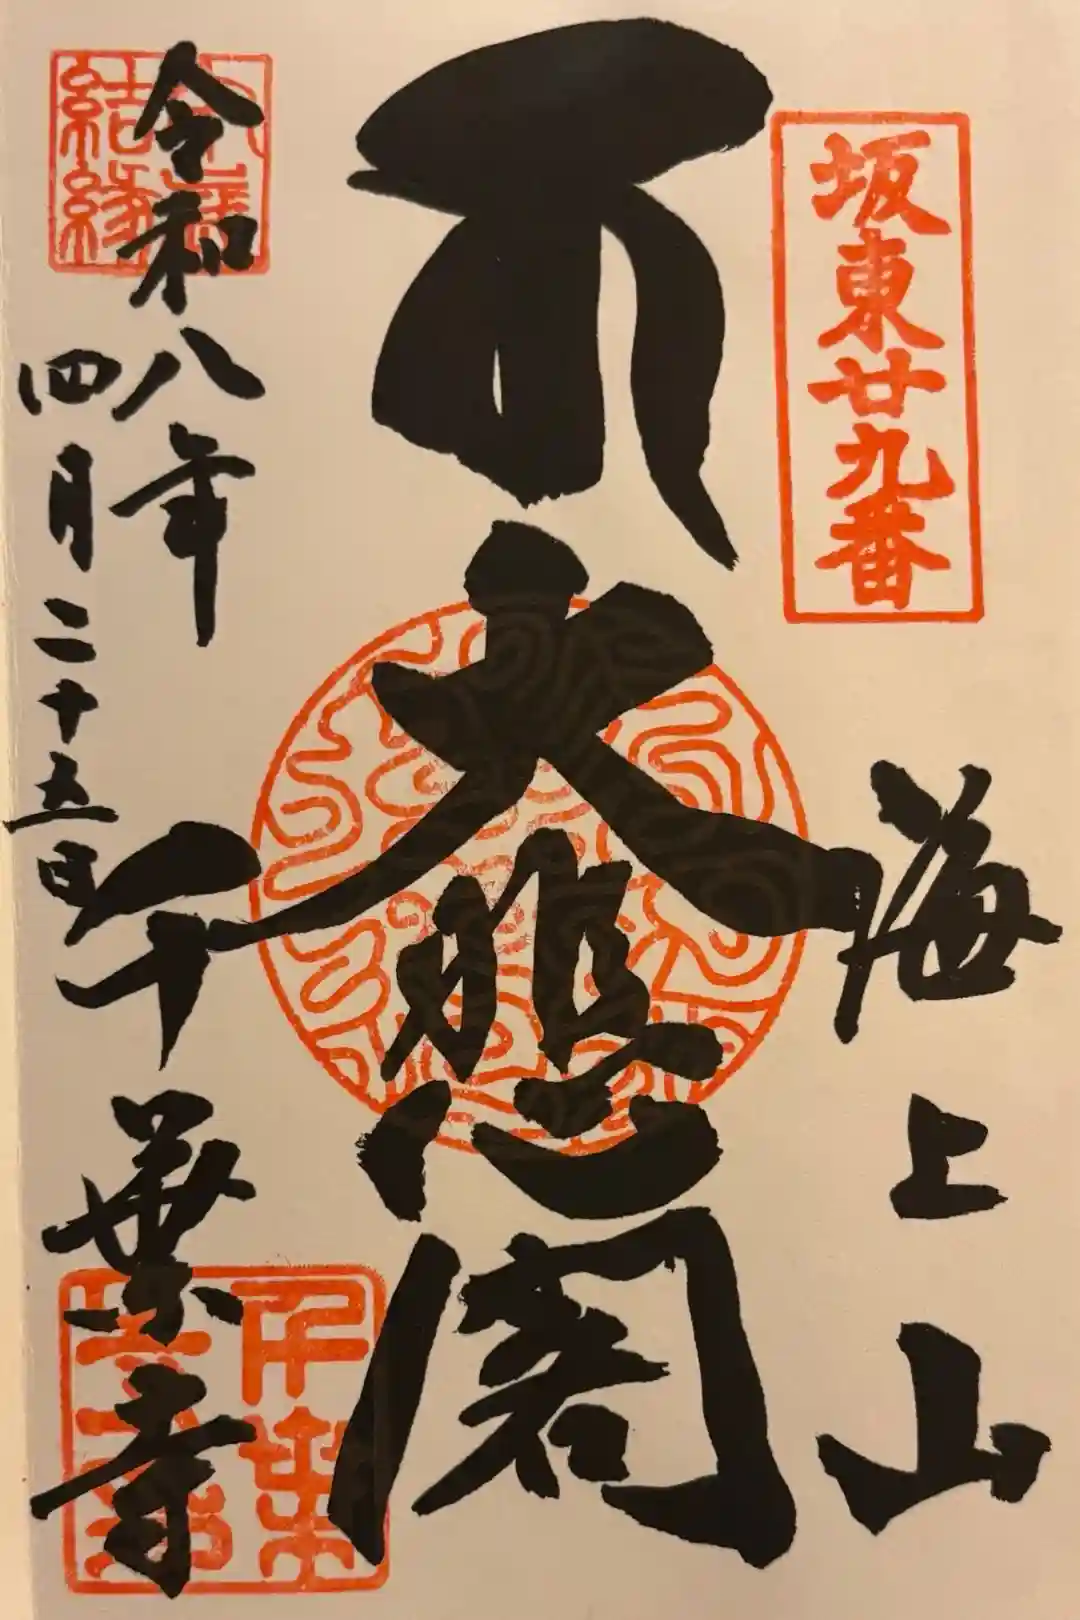 坂東廿九番
海上山
大悲閣
千葉寺
令和八年
四月二十五日
結縁
千葉